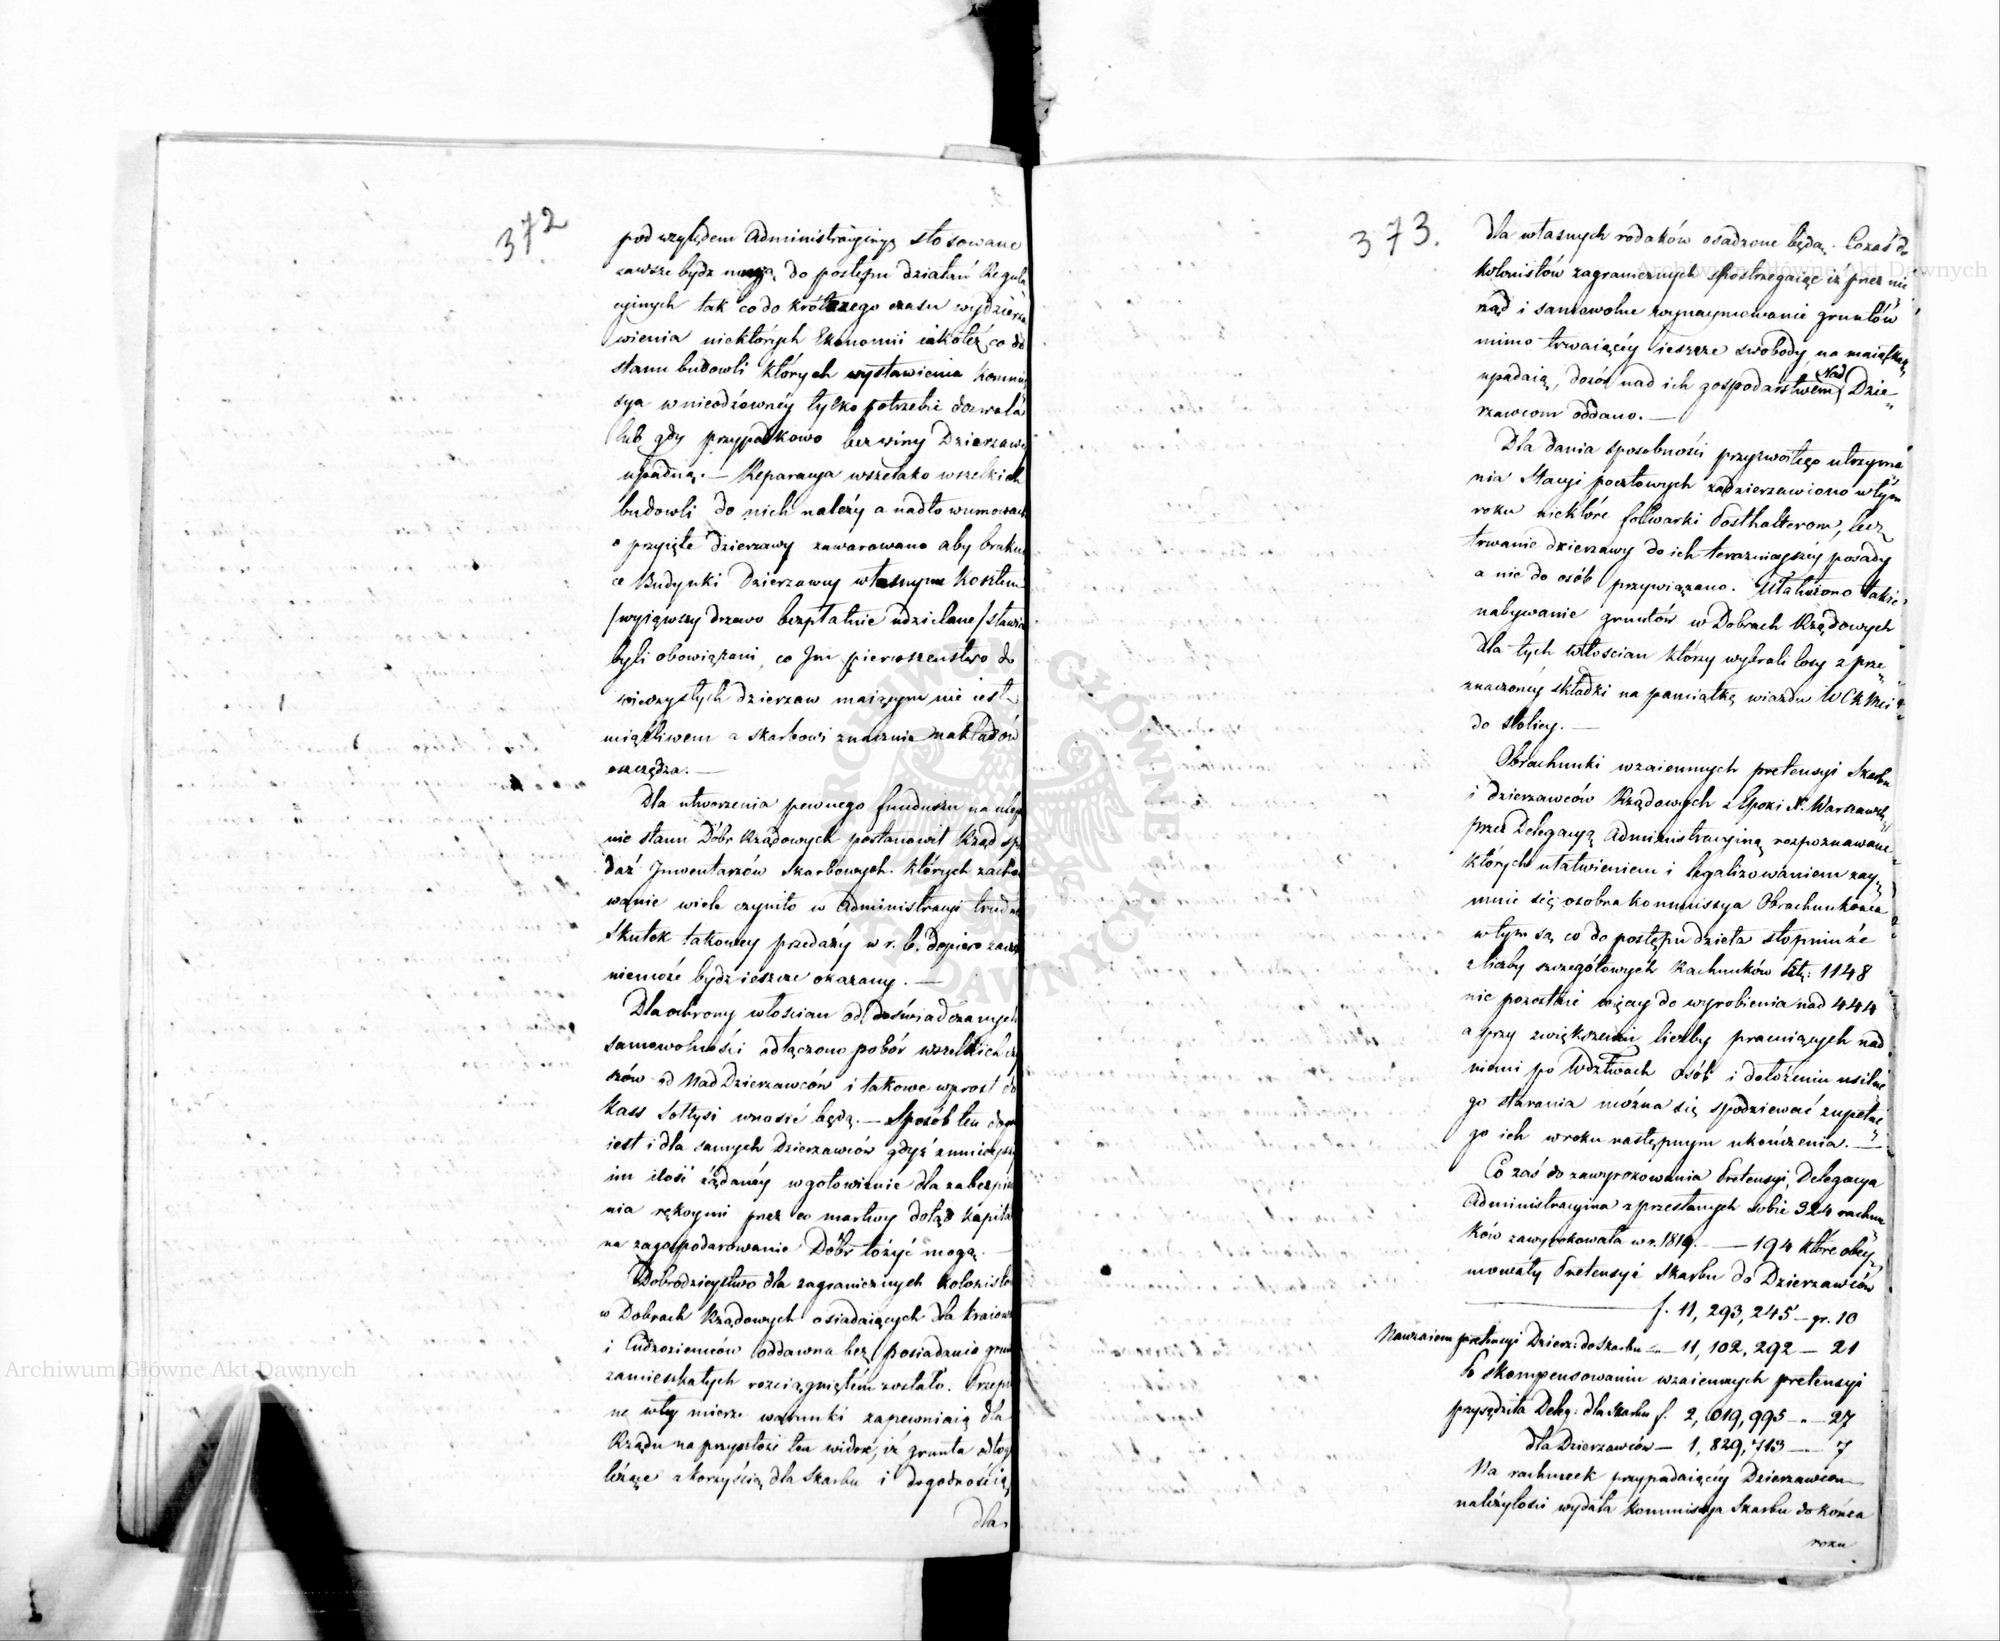 372
pod względem Administracyinym stosowane
zawsze bydz mogą do postępu działań Regula
cyinych tak co do krótszego czasu wydzierża
wienia niektórych Ekonomii iakoteż co do
stanu budowli których wystawienia Kommis
sya w nieodzowney tylko potrzebie dozwala
lub gdy przypadkowo bez winy Dzierzawcy
upadną. — Reparacya wszelako wszelkich
budowli do nich należy a nadto w umowach
o przyięte dzierzawy zawarowano aby braku
ce Budynki Dzierzawcy własnym kosztem
/wyiąwszy drzewo bezpłatnie udzielane/ stawiać
byli obowiązani, co Im pierwszenstwo do
wieczystych dzierzaw maiącym nie iest
uciążliwem a skarbowi znacznie nakładów
oszczędza. —
Dla utworzenia pewnego funduszu na ulep
nie stanu Dóbr Rządowych postanowił Rząd sprze
daż Inwentarzów skarbowych których zacho
wanie wiele czyniło w Administracyi trudno
Skutek takowey przedaży w r. b. dopiero
niemoże bydz ieszcze okazany. —
Dla ochrony włoscian od doświadczanych
samowolności odłączono pobór wszelkich czyn
szów od Nad Dzierzawców i takowe wprost do
kass Sołtysi wnosić będą. — Sposób ten
iest i dla samych Dzierzawców gdyż
im ilość żądaney w gotowiznie dla zabezpie
nia rękoymi przez co martwy dotąd kapitał
na zagospodarowanie Dóbr łożyć mogą. —
Dobrodzieystwo dla zagranicznych kolonistów
w Dobrach Rządowych osiadaiących dla kraiow
i Cudzoziemców oddawna bez posiadania grun
zamieszkałych rozciągniętem zostało. Przepi
ne w tey mierze warunki zapewniaią dla
Rządu na przyszłość ten widok, iż grunta odłog
leżące z korzyścią dla Skarbu i dogodnością
dla
373.
dla własnych rodaków osadzone będą. Cozaś do
kolonistów zagranicznych spostrzegaiąc iż przez nie
rząd i samowolne wynaymowanie gruntów
mimo trwaiącey ieszcze swobody na maiątkach
upadaią, dozór nad ich gospodarstwem Nad Dzie-
rzawcom oddano. —
Dla dania sposobności przyzwoitego utrzyma
nia Stacyi pocztowych zadzierzawiono w tym
roku niektóre folwarki Posthalterom, lecz
trwanie dzierzawy do ich teraznieyszey posady
a nie do osób przywiązano. Ułatwiono także
nabywanie gruntów w Dobrach Rządowych
dla tych włoscian którzy wybrali losy z prze
znaczoney składki na pamiątkę wiazdu
do stolicy. —
Obrachunki wzaiemnych pretensyi Skarbu
i dzierzawców Rządowych z Epoki X. Warszawsk:
przez Delegacyą Administracyiną rozpoznawane
których ułatwieniem i legalizowaniem zay
muie się osobna kommissya Obrachunkowa
w tym są co do postępu dzieła stopniu że
z liczby szczegółowych Rachunków Szt: 1148
nie pozostaie więcey do wyrobienia nad 444
a przy zwiększeniu liczby pracuiących nad
niemi po Wdztwach osób i dołożeniu usilne
go starania można się spodziewać zupełne
go ich w roku następnym ukończenia. —
Co zaś do zawyrokowania Pretensyi, Delegacya
Administracyina z przesłanych sobie 324 rachun
ków zawyrokowała w r. 1819. — 194 które obey
mowały Pretensyi Skarbu do Dzierzawców
f. 11,293,245 — gr. 10
Nawzaiem pretensyi Dzierz: do Skarbu — 11,102,292 — 21
Po skompensowaniu wzaiemnych pretensyi
przysądziła Deleg: dla Skarbu f. 2,019,995 — 27
dla Dzierzawców — 1,829,713 — 7
Na rachunek przypadaiącey Dzierzawcom
należytości wydała Kommissya Skarbu do końca
roku
Archiwum Główne Akt Dawnych
Archiwum Główne Akt Dawnych
ARCHIWUM GŁÓWNE AKT DAWNYCH